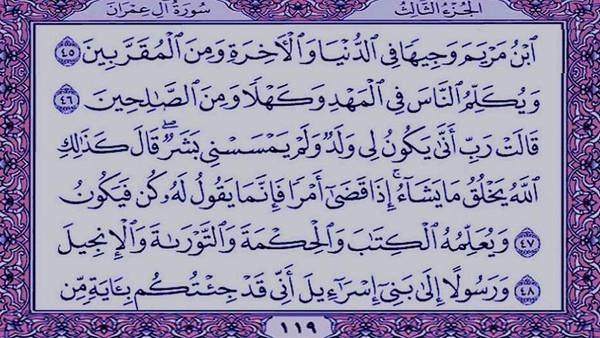 سُورَةُ آلِ عِمْرَانَ الجُزْءُ الثَّالِثُ
ابْنُ مَرْيَمَ وَجِيهًا فِي الدُّنْيَا وَالْآخِرَةِ وَمِنَ الْمُقَرَّبِينَ ٤٥
وَيُكَلِّمُ النَّاسَ فِي الْمَهْدِ وَكَهْلًا وَمِنَ الصَّالِحِينَ ٤٦
قَالَتْ رَبِّ أَنَّىٰ يَكُونُ لِي وَلَدٌ وَلَمْ يَمْسَسْنِي بَشَرٌ ۖ قَالَ كَذَٰلِكِ
اللَّهُ يَخْلُقُ مَا يَشَاءُ ۚ إِذَا قَضَىٰ أَمْرًا فَإِنَّمَا يَقُولُ لَهُ كُن فَيَكُونُ
٤٧ وَيُعَلِّمُهُ الْكِتَابَ وَالْحِكْمَةَ وَالتَّوْرَاةَ وَالْإِنجِيلَ
٤٨ وَرَسُولًا إِلَىٰ بَنِي إِسْرَائِيلَ أَنِّي قَدْ جِئْتُكُم بِآيَةٍ مِّن
١١٩